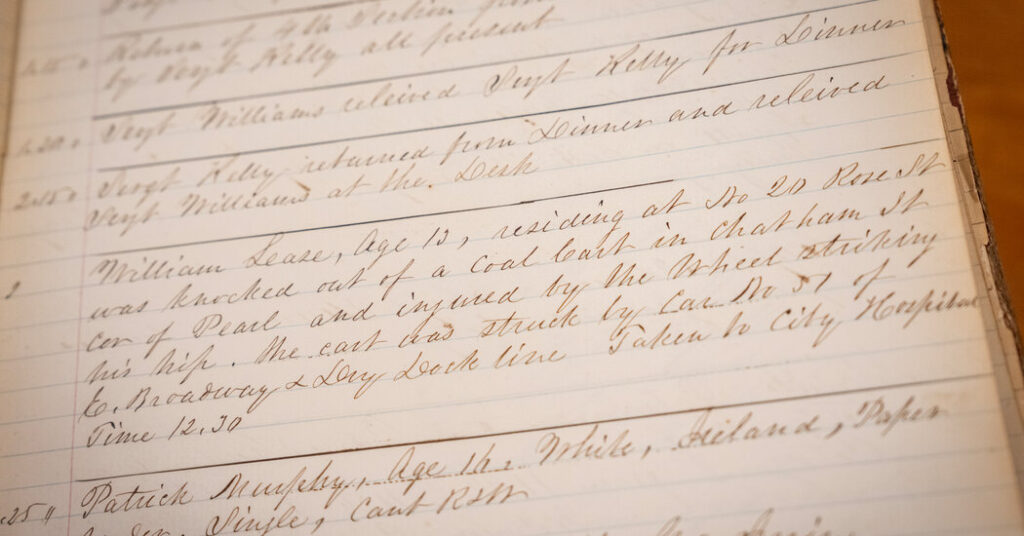 Return of 4th Section from
by Sergt Kelly all present
Sergt Williams releived Sergt Kelly for Dinner
2.15 " Sergt Kelly returned from Dinner and releived
Sergt Williams at the Desk
William Lease, Age 13, residing at No 20 Rose St
was knocked out of a Coal Cart in Chatham St
cor of Pearl and injured by the Wheel striking
his hip. the cart was struck by Car No 57 of
E. Broadway & Dry Dock line Taken to City Hospital
Time 12.30
.25 " Patrick Murphy, Age 14, White, Ireland, Paper
Single, Cant R&W